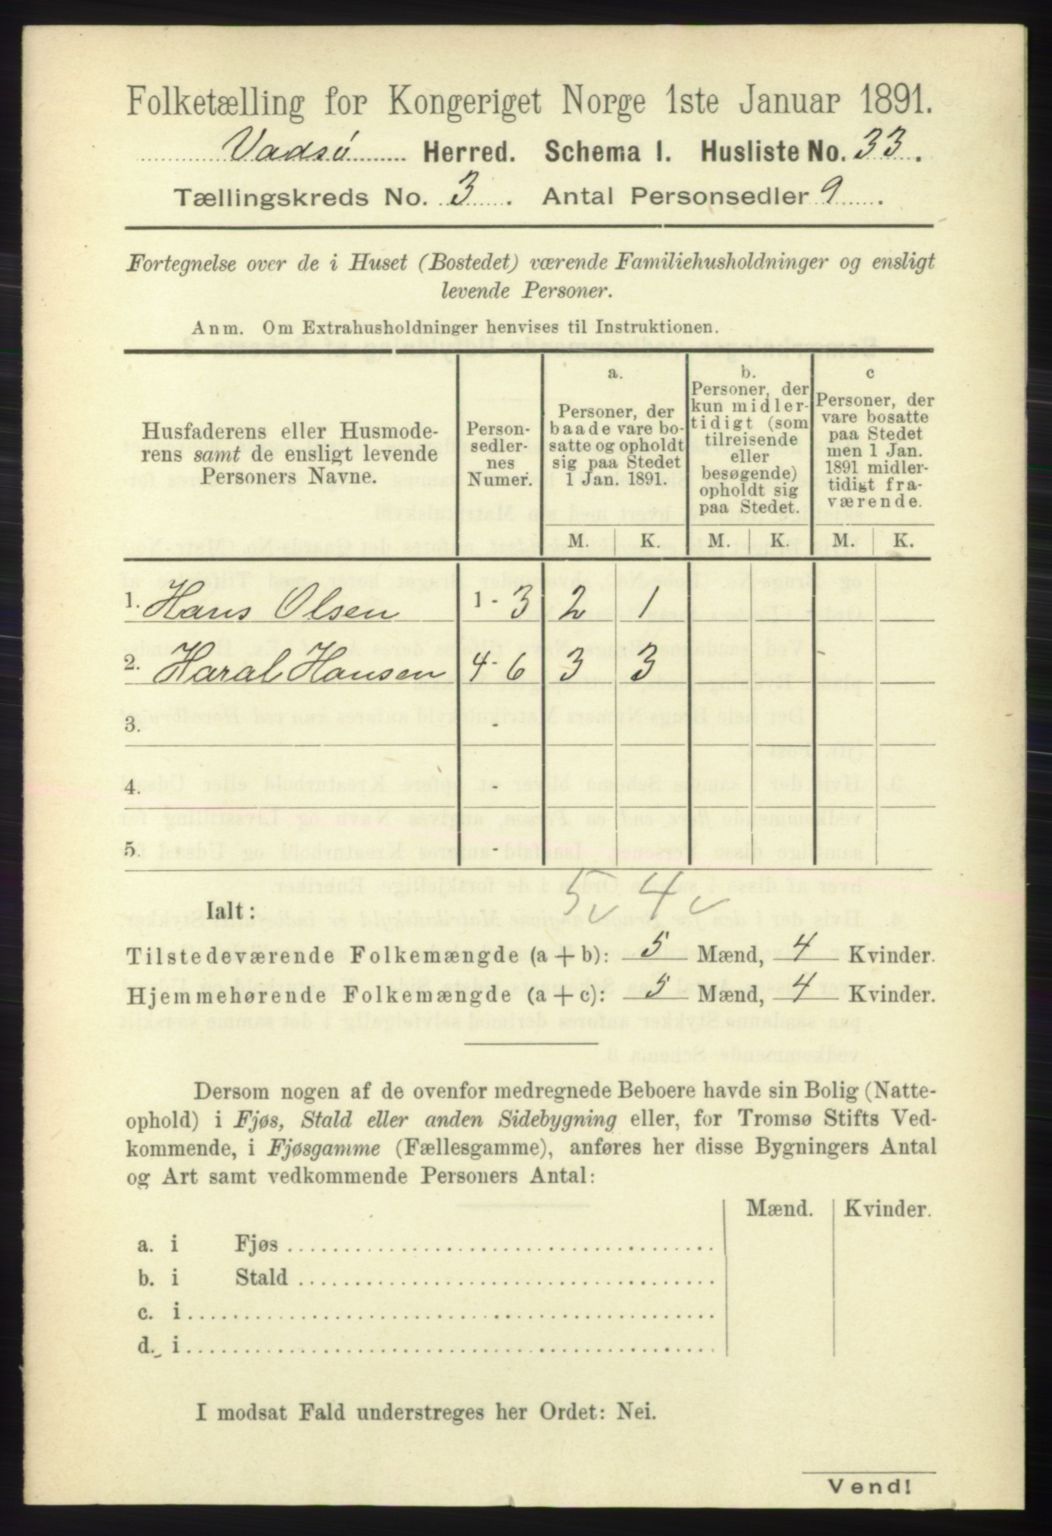 Folketælling for Kongeriget Norge 1ste Januar 1891.
Vadsø Herred. Schema I. Husliste No. 33.
Tællingskreds No. 3. Antal Personsedler 9.
Fortegnelse over de i Huset (Bostedet) værende Familiehusholdninger og ensligt
levende Personer.
Anm. Om Extrahusholdninger henvises til Instruktionen.
Husfaderens eller Husmode-
rens samt de ensligt levende
Personers Navne.
Person-
sedler-
nes
Numer.
a.
Personer, der
baade vare bo-
satte og opholdt
sig paa Stedet
1 Jan. 1891.
b.
Personer, der
kun midler-
tidigt (som
tilreisende
eller
besøgende)
opholdt sig
paa Stedet.
c
Personer, der
vare bosatte
paa Stedet
men 1 Jan.
1891 midler-
tidigt fra-
værende.
M. K. M. K. M. K.
1. Hans Olsen 1 - 3 2 1
2. Haral Hansen 4 - 6 3 3
3. -
4. -
5. -
5 4
Ialt:
Tilstedeværende Folkemængde (a + b): 5 Mænd, 4 Kvinder.
Hjemmehørende Folkemængde (a + c): 5 Mænd, 4 Kvinder.
Dersom nogen af de ovenfor medregnede Beboere havde sin Bolig (Natte-
ophold) i Fjøs, Stald eller anden Sidebygning eller, for Tromsø Stifts Ved-
kommende, i Fjøsgamme (Fællesgamme), anføres her disse Bygningers Antal
og Art samt vedkommende Personers Antal:
Mænd. Kvinder.
a. i Fjøs
b. i Stald
c. i
d. i
I modsat Fald understreges her Ordet: Nei.
Vend!